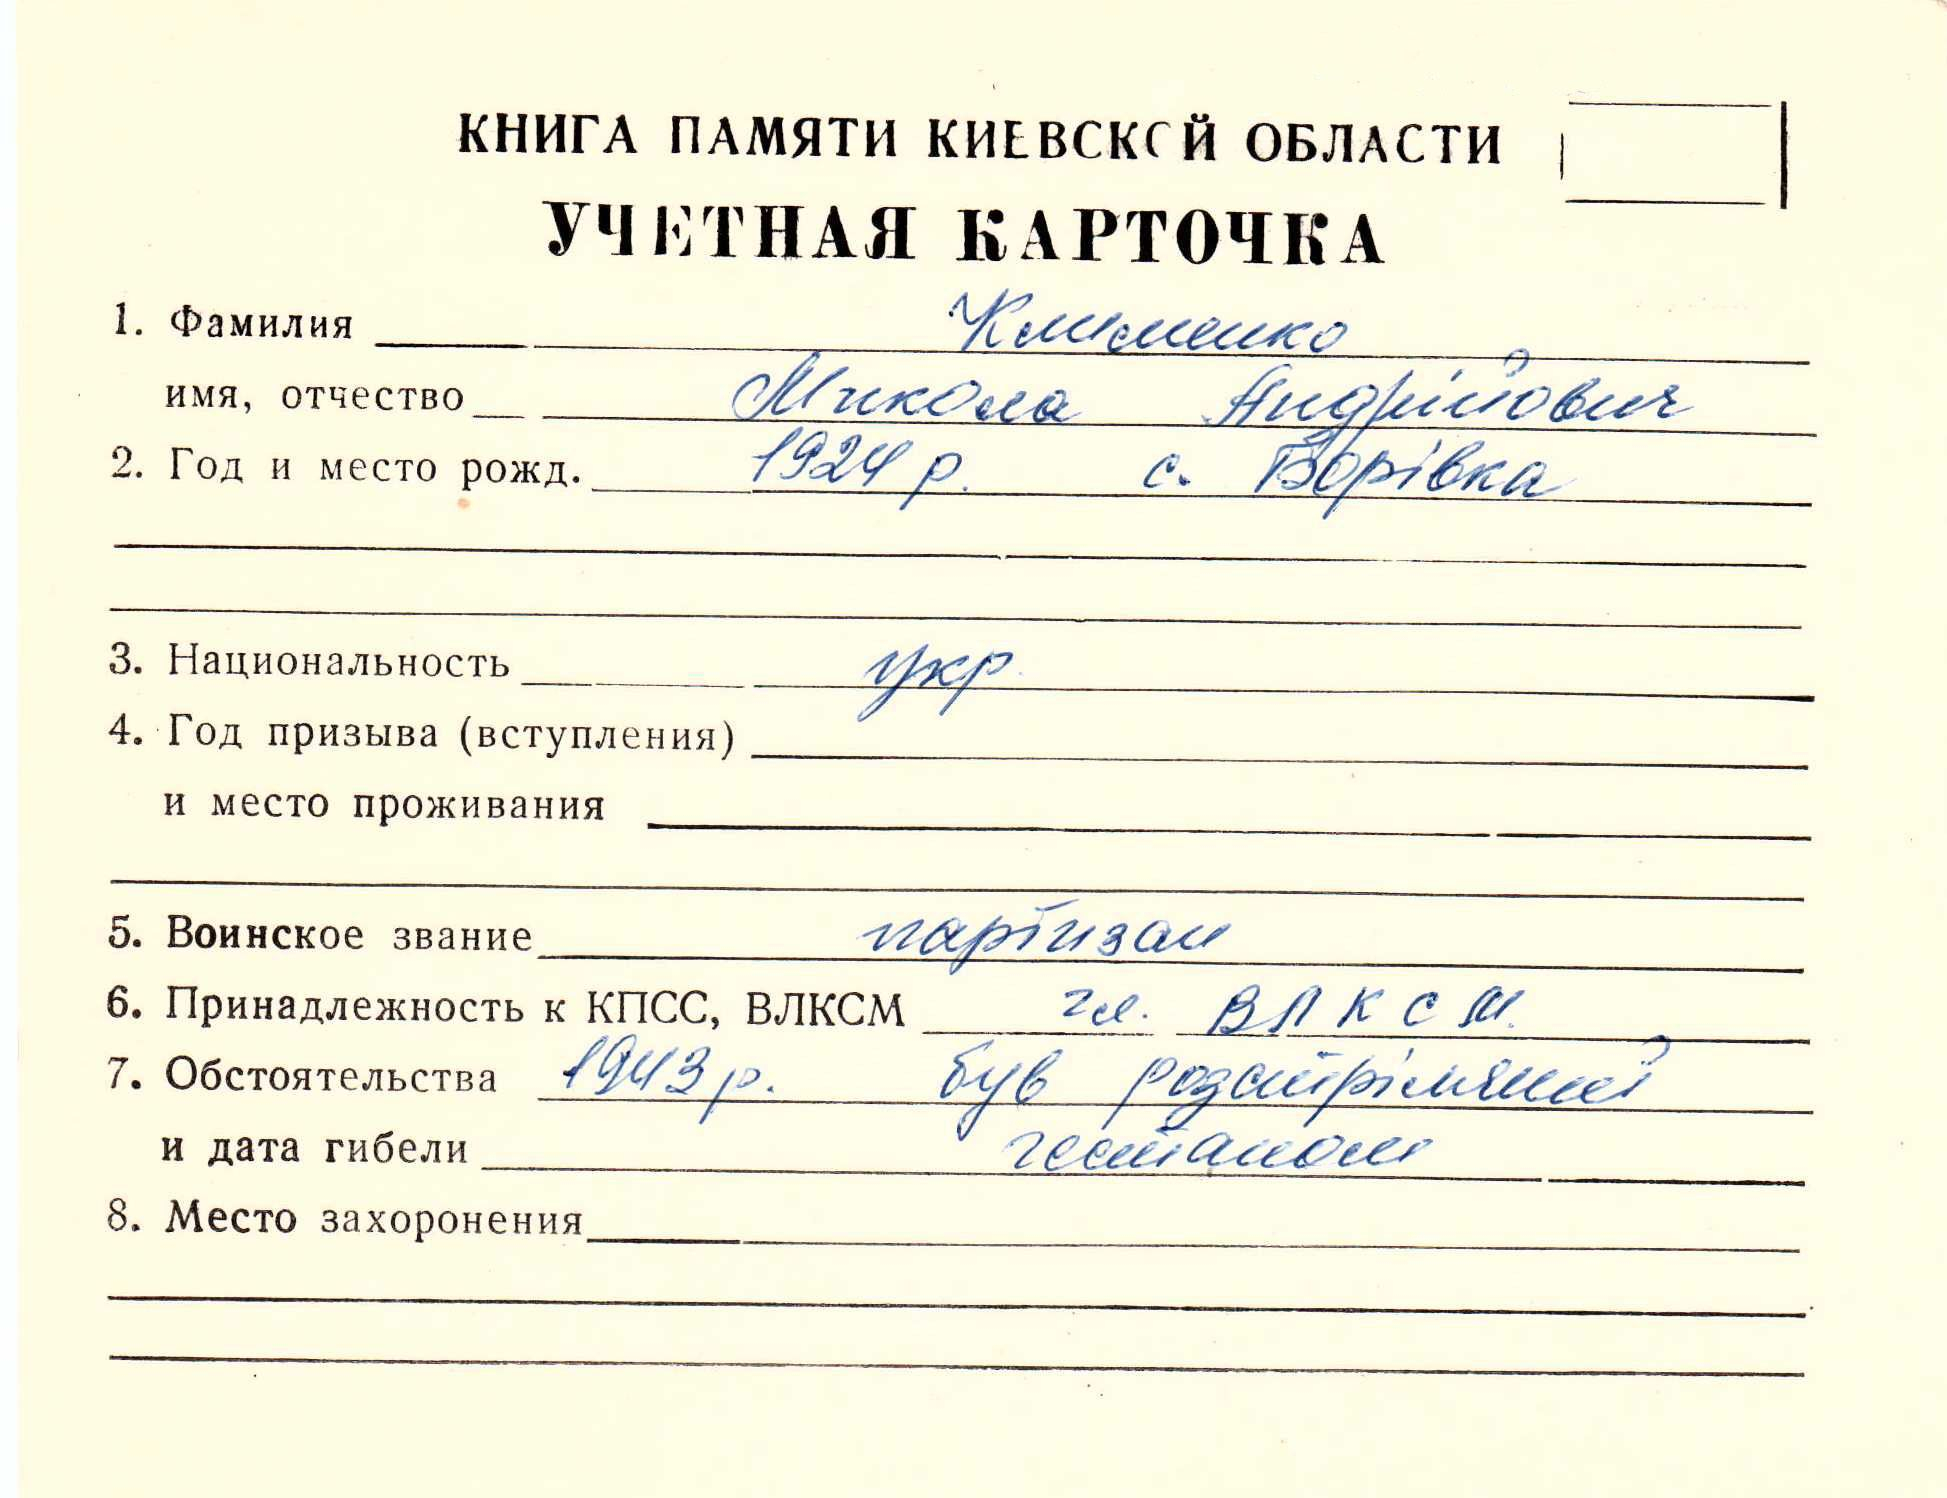 КНИГА ПАМЯТИ КИЕВСКОЙ ОБЛАСТИ
УЧЕТНАЯ КАРТОЧКА
1. Фамилия Клименко
имя, отчество Микола Андрійович
2. Год и место рожд. 1924 р. с. Борівка
3. Национальность укр.
4. Год призыва (вступления)
и место проживания
5. Воинское звание партизан
6. Принадлежность к КПСС, ВЛКСМ чл. ВЛКСМ.
7. Обстоятельства 1943 р. був розстріляний
и дата гибели гестапом
8. Место захоронения